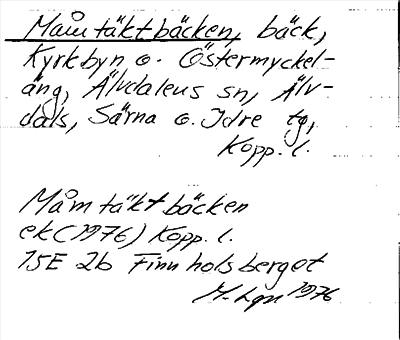 Måmtäktbäcken, bäck,
Kyrkbyn o. Östermyckel-
äng, Älvdalens sn, Älv-
dals, Särna o. Idre tg,
Kopp. l.
Måmtäktbäcken
ek (1976) Kopp. l.
15E 2b Finnholsberget
M-Lgn 1976